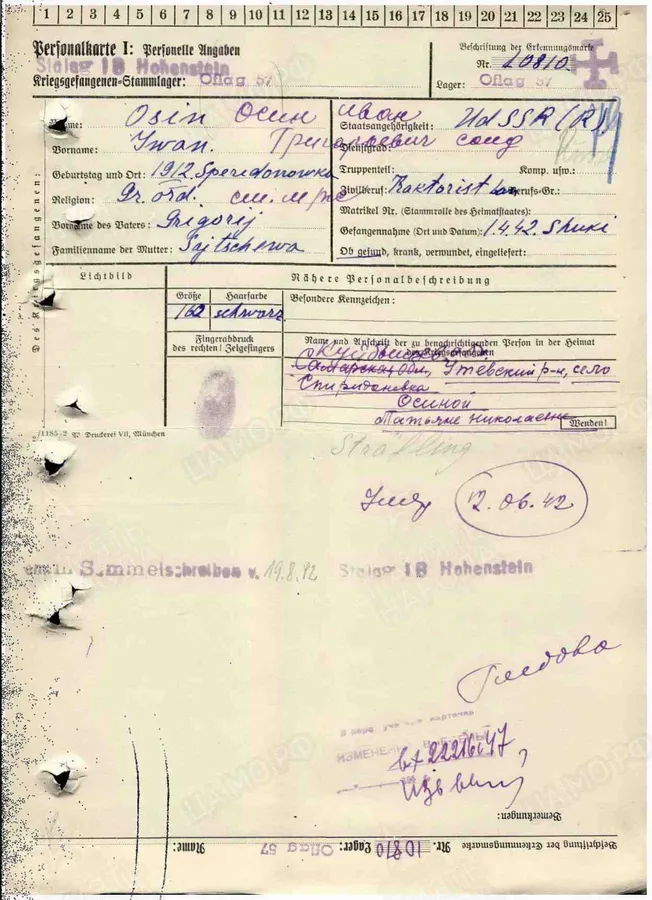 1 2 3 4 5 6 7 8 9 10 11 12 13 14 15 16 17 18 19 20 21 22 23 24 25
Personalkarte I: Personelle Angaben
Stalag 1B Hohenstein
Kriegsgefangenen-Stammlager: Oflag 57
Beschriftung der Erkennungsmarke
Nr. 10810
Lager: Oflag 57
Des Kriegsgefangenen:
Name: Osin Осин Иван
Vorname: Iwan. Григорьевич
Geburtstag und Ort: 1912, Speridonowka
Religion: Gr. otd.
Vorname des Vaters: Grigorij
Familienname der Mutter: Sajtschewa
Staatsangehörigkeit: UdSSR (R)
Dienstgrad: солд
Truppenteil: Komp. usw.:
Zivilberuf: Traktorist Berufs-Gr.:
Matrikel Nr. (Stammrolle des Heimatstaates):
Gefangennahme (Ort und Datum): 1.4.42.
Ob gesund, krank, verwundet, eingeliefert:
Lichtbild
Nähere Personalbeschreibung
Größe Haarfarbe Besondere Kennzeichen:
162 schwarz
Fingerabdruck
des rechten! Zeigefingers
Name und Anschrift der zu benachrichtigenden Person in der Heimat
des Kriegsgefangenen
Куйбышевская
Самарская обл, Утевский р-н, село
Спиридоновка
Осиной
Татьяне Николаевне
Wenden!
/1185-2 Druckerei VII, München
Sträfling
12.06.42
Sammelschreiben v. 19.8.42 Stalag 1B Hohenstein
Глебова
карточка
ИЗМЕНЕНИЯ
Bemerkungen:
Beschriftung der Erkennungsmarke Nr. 10810 Lager: Oflag 57 Name:
ЦАМО РФ